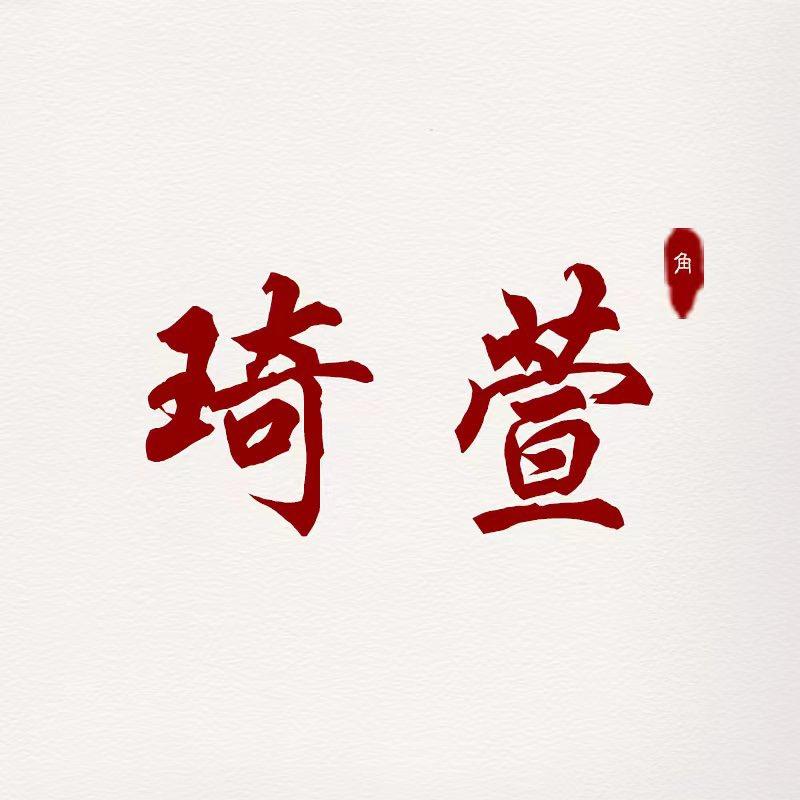 琦萱
角